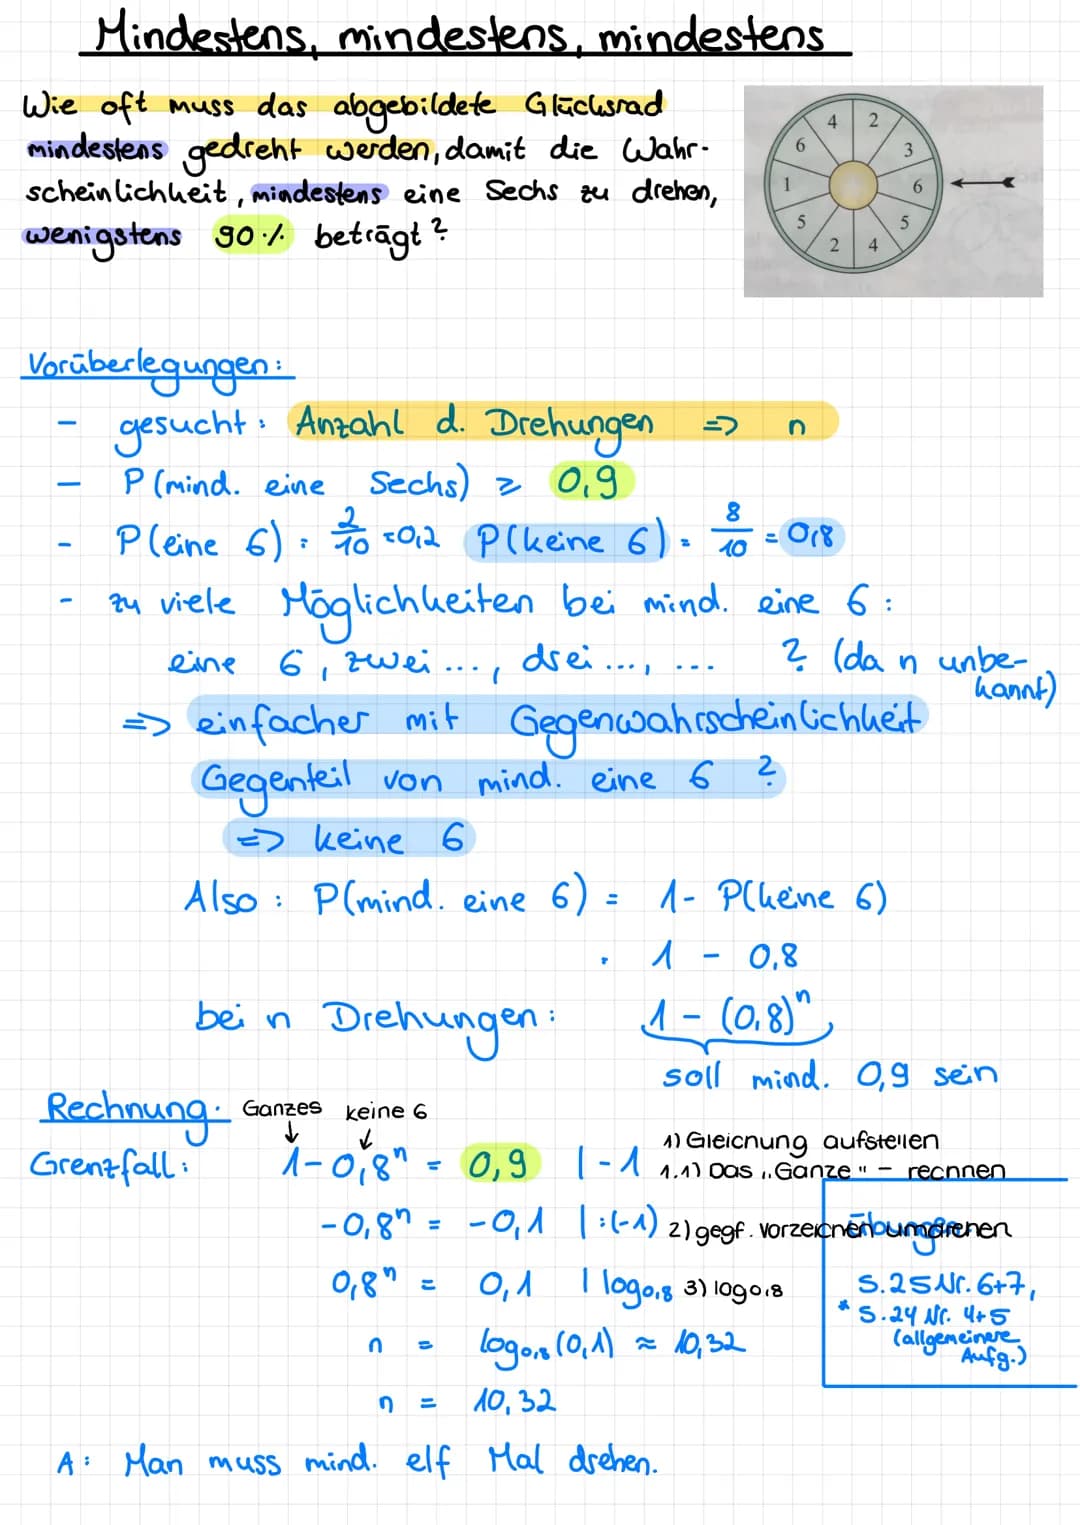 Mindestens, mindestens, mindestens
Wie oft muss das abgebildete Glücksrad
mindestens gedreht werden, damit die Wahr-
scheinlichkeit, mindestens eine Sechs zu drehen,
wenigstens 90 % beträgt?
4 2
6 3
1 6
5 5
2 4
Vorüberlegungen:
- gesucht: Anzahl d. Drehungen => n
- P(mind. eine Sechs) ≥ 0,9
- P(eine 6) = 2/10 = 0,2 P(keine 6) = 8/10 = 0,8
- zu viele Möglichkeiten bei mind. eine 6:
eine 6, zwei ..., drei ..., ... ? (da n unbe-
kannt)
=> einfacher mit Gegenwahrscheinlichkeit
Gegenteil von mind. eine 6 ?
=> keine 6
Also: P(mind. eine 6) = 1 - P(keine 6)
= 1 - 0,8
bei n Drehungen: 1 - (0,8)ⁿ
soll mind. 0,9 sein
Rechnung: Ganzes keine 6
↓ ↓
Grenzfall: 1-0,8ⁿ = 0,9 | -1
1) Gleichnung aufstellen
1.1) Das "Ganze" - rechnen
-0,8ⁿ = -0,1 | :(-1) 2) gegf. vorzeichen umdrehen
0,8ⁿ = 0,1 | log₀,₈ 3) log₀,₈
n = log₀,₈ (0,1) ≈ 10,32
n = 10,32
Übungen
S.25 Nr. 6+7,
* S.24 Nr. 4+5
(allgemeinere
Aufg.)
A: Man muss mind. elf Mal drehen.